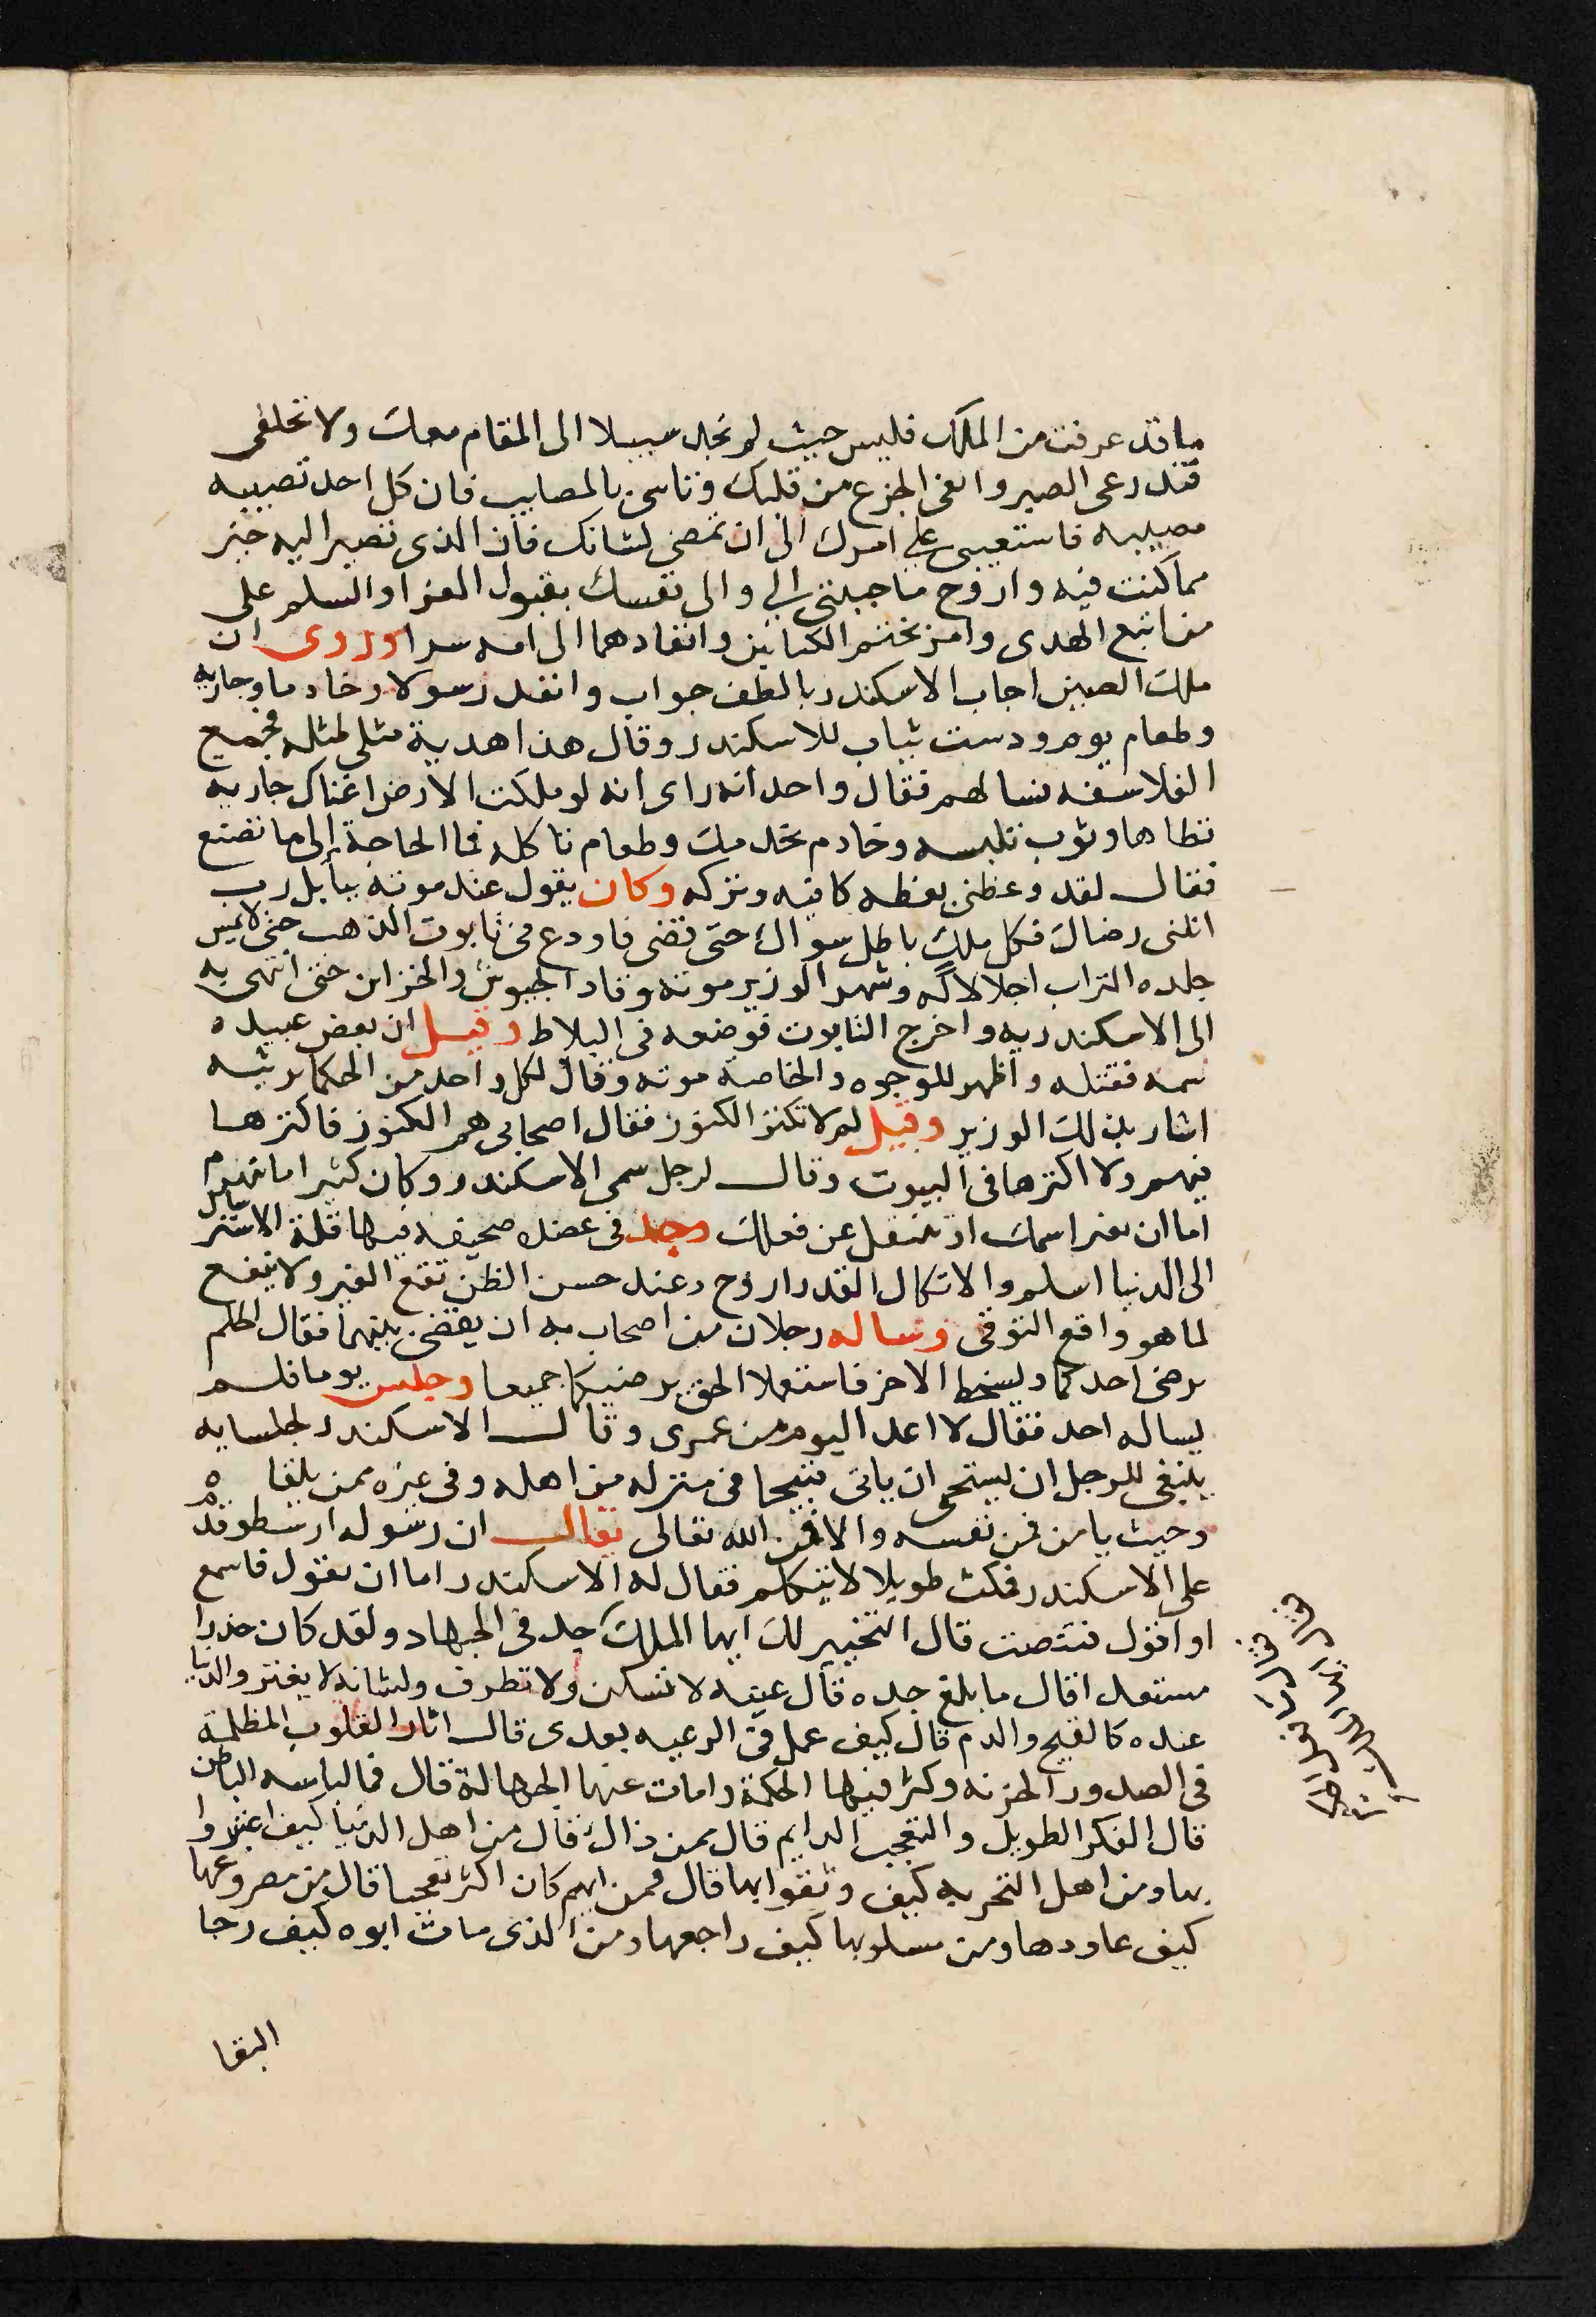 ما قد عرفت من الملك فليس حيث لم نجد سبيلا الى المقام معك ولا تخلفى
فتدرعى الصبر وانفى الجزع من قلبك وتاسى بالمصايب فان كل احد تصيبه
مصيبه فاستعيبى على امرك الى ان تمضى لشانك فان الذى نصير اليه خير
مما كنت فيه واروح ما جبلتى الي والى نفسك بقبول العزا والسلم على
من اتبع الهدى وامر بختم الكتابين وانفادهما الى امه سرا وروى ان
ملك الصين اجاب الاسكندر بالطف جواب وانفد رسولا وخادما وجاريه
وطعام يوم ودست ثياب للاسكندر وقال هذا هدية مثلى لمثله فجمع
الفلاسفه فسالهم فقال واحد انه راى انه لو ملكت الارض اغناك جاريه
تطاها وثوب تلبسه وخادم يخدمك وطعام تاكله فما الحاجة الى ما تصنع
فقال لقد وعظنى بعظه كافيه وتركه وكان يقول عند موته ببابل رب
انلنى رضاك فكل ملك باطل سواك حتى قضى فاودع فى تابوت الذهب حتى لا يمس
جلده التراب اجلالا له وشهد الوزير موته وقاد الجيوش والخزاين حتى انتهى به
الى الاسكندريه واخرج التابوت فوضعه فى البلاط وقيل ان بعض عبيده
سمه فقتله واظهر للوجوه والخاصة موته وقال لكل واحد من الحكما يرثيه
اشار بذلك الوزير وقيل لم لا تكنز الكنوز فقال اصحابى هم الكنوز فاكنزها
فيهم ولا اكنزها فى البيوت وقال لرجل سمى الاسكندر وكان كثيرا ما ينهزم
اما ان تغير اسمك او تنتقل عن فعلك وجد فى عضده صحيفه فيها قلة الاسترسال
الى الدنيا اسلم والاتكال القدر اروح وعند حسن الظن تقع الغير ولا ينفع
لما هو واقع التوقى وساله رجلان من اصحابه ان يقضى بينهما فقال الحكم
يرضى احدكما ويسخط الاخر فاستعملا الحق يرضيكما جميعا وجلس يوما فلم
يساله احد فقال لا اعد اليوم من عمرى وقال الاسكندر لجلسايه
ينبغى للرجل ان يستحى ان ياتى قبيحا فى منزله من اهله وفى غيره ممن يلقاه
وحيث يامن فمن نفسه والا فمن الله تعالى يقال ان رسول ارسطو قدم
على الاسكندر فمكث طويلا لا يتكلم فقال له الاسكندر اما ان تقول فاسمع
او اقول فتنصت قال التخيير لك ايها الملك جد فى الجهاد ولقد كان حذرا
مستعدا قال ما بلغ جده قال عينه لا تسكن ولا تطرف ولسانه لا يفتر والدنيا
عنده كالقيح والدم قال كيف عمل فى الرعيه بعدى قال انار القلوب المظلمة
فى الصدور الحزنه وكثر فيها الحكمة وامات عنها الجهالة قال فما لباسه الباطن
قال الفكر الطويل والتعجب الدايم قال ممن ذاك قال من اهل الدنيا كيف اغتروا
بها ومن اهل التجربه كيف وثقوا بها قال فمن ايهم كان اكثر تعجبا قال من مصروعها
كيف عاودها ومن مسلوبها كيف راجعها ومن الذى مات ابوه كيف رجا
البقا